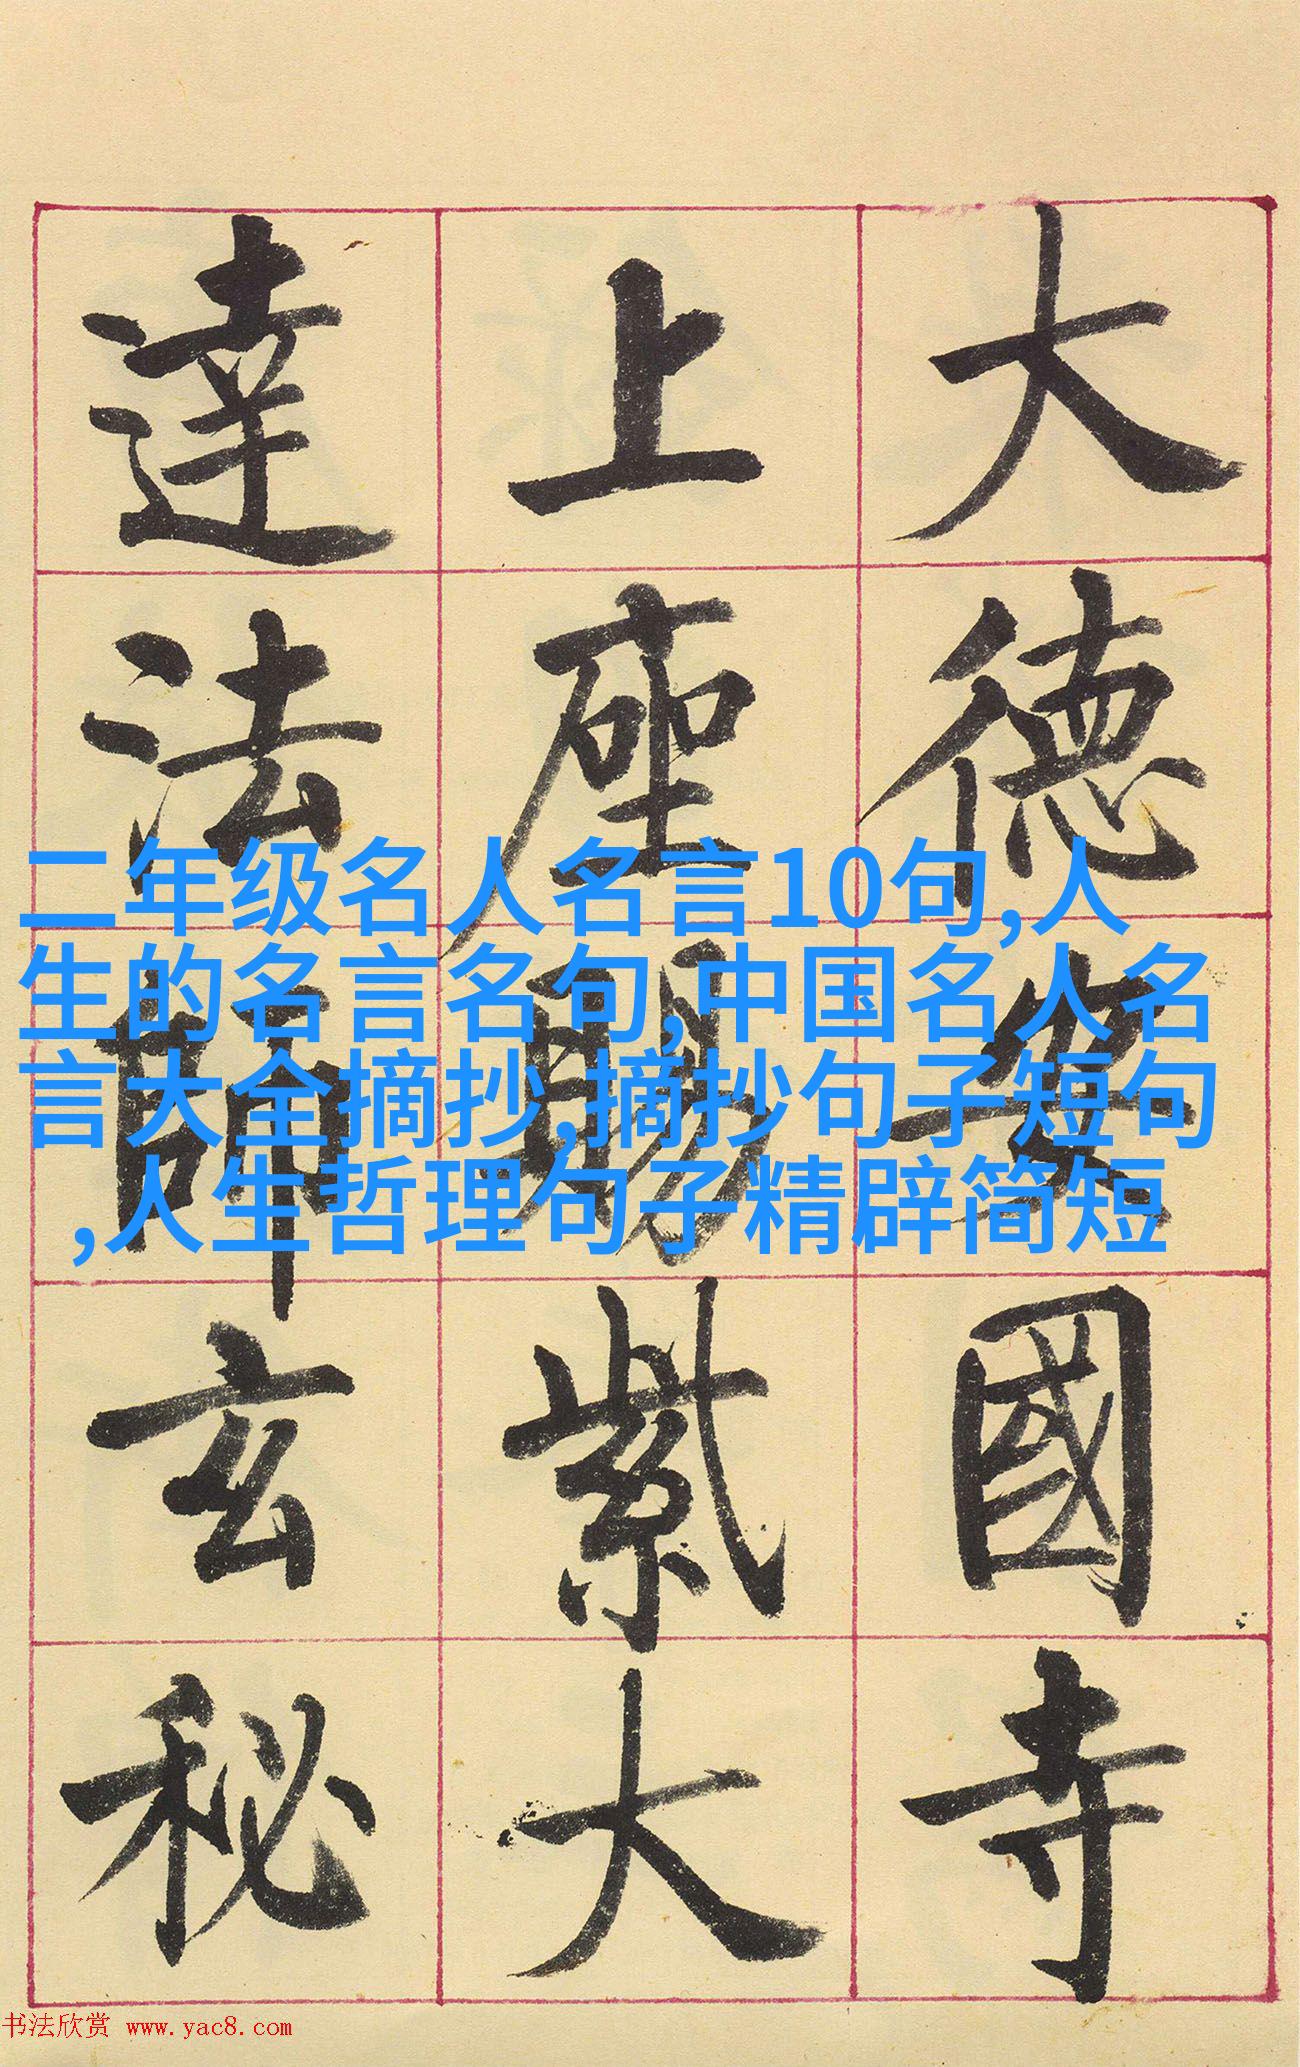 大德安國寺
上座賜紫大
達法師玄秘
二年级名人名言10句,人
生的名言名句,中国名人名
言大全摘抄,摘抄句子短句
,人生哲理句子精辟简短
书法欣赏 www.yac8.com